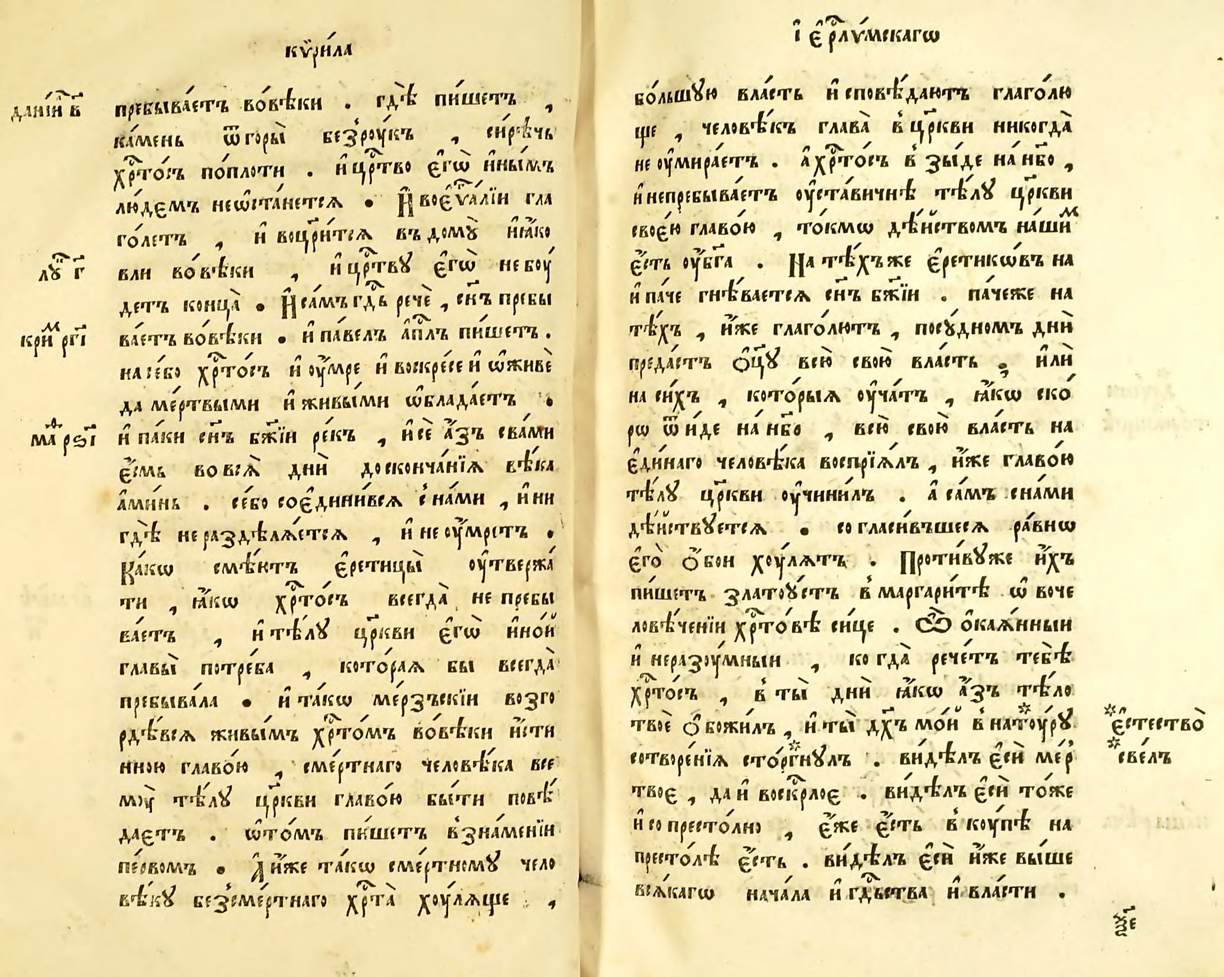 кѷри́ла
данїи҃ в҃
пребыва́етъ во́вѣки . гдѣ̀ пи́шетъ ,
ка́мень ѿ горы̀ безрꙋ́къ , си́рѣчь
хрⷭ҇то́съ по́плоти . и҆ црⷭ҇тво є҆гѡ̀ и҆ны́мъ
лю́демъ неѡста́нетсѧ . И҆ воеѵⷢ҇а́лїи гла
го́летъ , и҆ воцр҃и́тсѧ въ домꙋ̀ и҆ꙗ҆ко
лꙋ г҃
вли во́вѣки , и҆ црⷭ҇твꙋ є҆гѡ̀ не бꙋ́
детъ конца̀ . И҆ са́мъ гдⷭ҇ь речѐ , сн҃ъ пребы
кри рг҃і
ва́етъ во́вѣки . и҆ па́велъ а҆пⷭ҇лъ пи́шетъ .
на се́бо хрⷭ҇то́съ и҆ ᲂу҆́мре и҆ воскре́се и҆ ѡ҆живѐ
да ме́ртвыми и҆ живы́ми ѡ҆блада́етъ .
ма рѕ҃і
и҆ па́ки сн҃ъ бж҃їи ре́къ , и҆ сѐ а҆́зъ сва́ми
є҆́смь во всѧ̀ дни̑ до сконча́нїѧ вѣ́ка
а҆ми́нь . се́бо соє҆дини́всѧ с на́ми , и҆ ни
гдѣ̀ не раздѣлѧ́етсѧ , и҆ не ᲂу҆́мретъ .
Ка́кѡ смѣ́ютъ є҆ретицы̀ ᲂу҆твержа́
ти , ꙗ҆́кѡ хрⷭ҇то́съ всегда̀ не пребы
ва́етъ , и҆ тѣ́лꙋ цр҃кви є҆гѡ̀ и҆но́й
главы̀ потре́ба , кото́раѧ бы всегда̀
пребыва́ла . и҆ та́кѡ ме́рзъскїи возго
рдѣ́всѧ живы́мъ хрⷭ҇то́мъ во́вѣки и҆́сти
нною главо́ю , сме́ртнаго человѣ́ка все
мꙋ̀ тѣ́лꙋ цр҃кви главо́ю бы́ти повѣ́
да́етъ . ѡ҆то́мъ пи́шетъ в зна́менїи
пе́рвомъ . А҆ и҆́же та́кѡ сме́ртномꙋ чело
вѣ́кꙋ безсме́ртнаго хрⷭ҇та̀ хꙋ́лѧще ,
і є҆рⷭ҇лѵ́мскагѡ
бо́льшꙋю вла́сть и҆сповѣ́даютъ глаго́лю
ще , человѣ́къ глава̀ в цр҃кви никогда̀
не ᲂу҆мира́етъ . а҆ хрⷭ҇то́съ в зы́де на нб҃о ,
и҆ непребыва́етъ ᲂу҆ста́вичнѣ тѣ́лꙋ цр҃кви
своє́ю главо́ю , то́кмѡ дѣ́йствомъ на́шиⷨ
є҆́сть ᲂу҆бѣ́га . На тѣ́хъже є҆ретикѡ́въ на
и҆ па́че гнѣ́вается сн҃ъ бж҃їи . па́чеже на
тѣ́хъ , и҆́же глаго́лютъ , посꙋ́дномъ днѝ
преда́стъ ѻ҆ц҃ꙋ̀ всю̀ свою̀ вла́сть , и҆лѝ
на си́хъ , кото́рыѧ ᲂу҆ча́тъ , ꙗ҆́кѡ ско́
рѡ ѿ и́де на нб҃о , всю̀ свою̀ вла́сть на
є҆ди́наго человѣ́ка воспрїѧ́лъ , и҆́же главо́ю
тѣ́лꙋ цр҃кви ᲂу҆чини́лъ . а҆ са́мъ сна́ми
дѣ́йствꙋетсѧ . со гласи́въшесѧ ра́внѡ
є҆го̀ ѻ҆́бои хꙋ́лѧтъ . Проти́вꙋже и҆́хъ
пи́шетъ златоꙋ́стъ в маргари́тѣ ѡ҆ воче
ловѣ́ченїи хрⷭ҇то́вѣ си́це . Ѽ ѻ҆каѧ́нныи
и҆ неразꙋ́мныи , ко гда̀ рече́тъ тебѣ̀
хрⷭ҇то́съ , в ты̀ дни̑ ꙗ҆́кѡ а҆́зъ тѣ́ло
твоѐ ѻ҆божи́лъ , и҆ ты̀ дх҃ъ мо́й в на*тꙋ́рꙋ
*є҆стество̀
сотворе́нїѧ сто́*ргнꙋлъ . ви́дѣлъ є҆сѝ ме́р
*све́лъ
твоє , да и҆ воскрⷭ҇лоє . ви́дѣлъ є҆сѝ то́же
и҆ со престо́лно , є҆́же є҆́сть в кꙋ́пѣ на
престо́лѣ є҆́сть . ви́дѣлъ є҆сѝ и҆́же вы́ше
всѧ́кагѡ нача́ла и҆ гдⷭ҇ьства и҆ вла́сти .